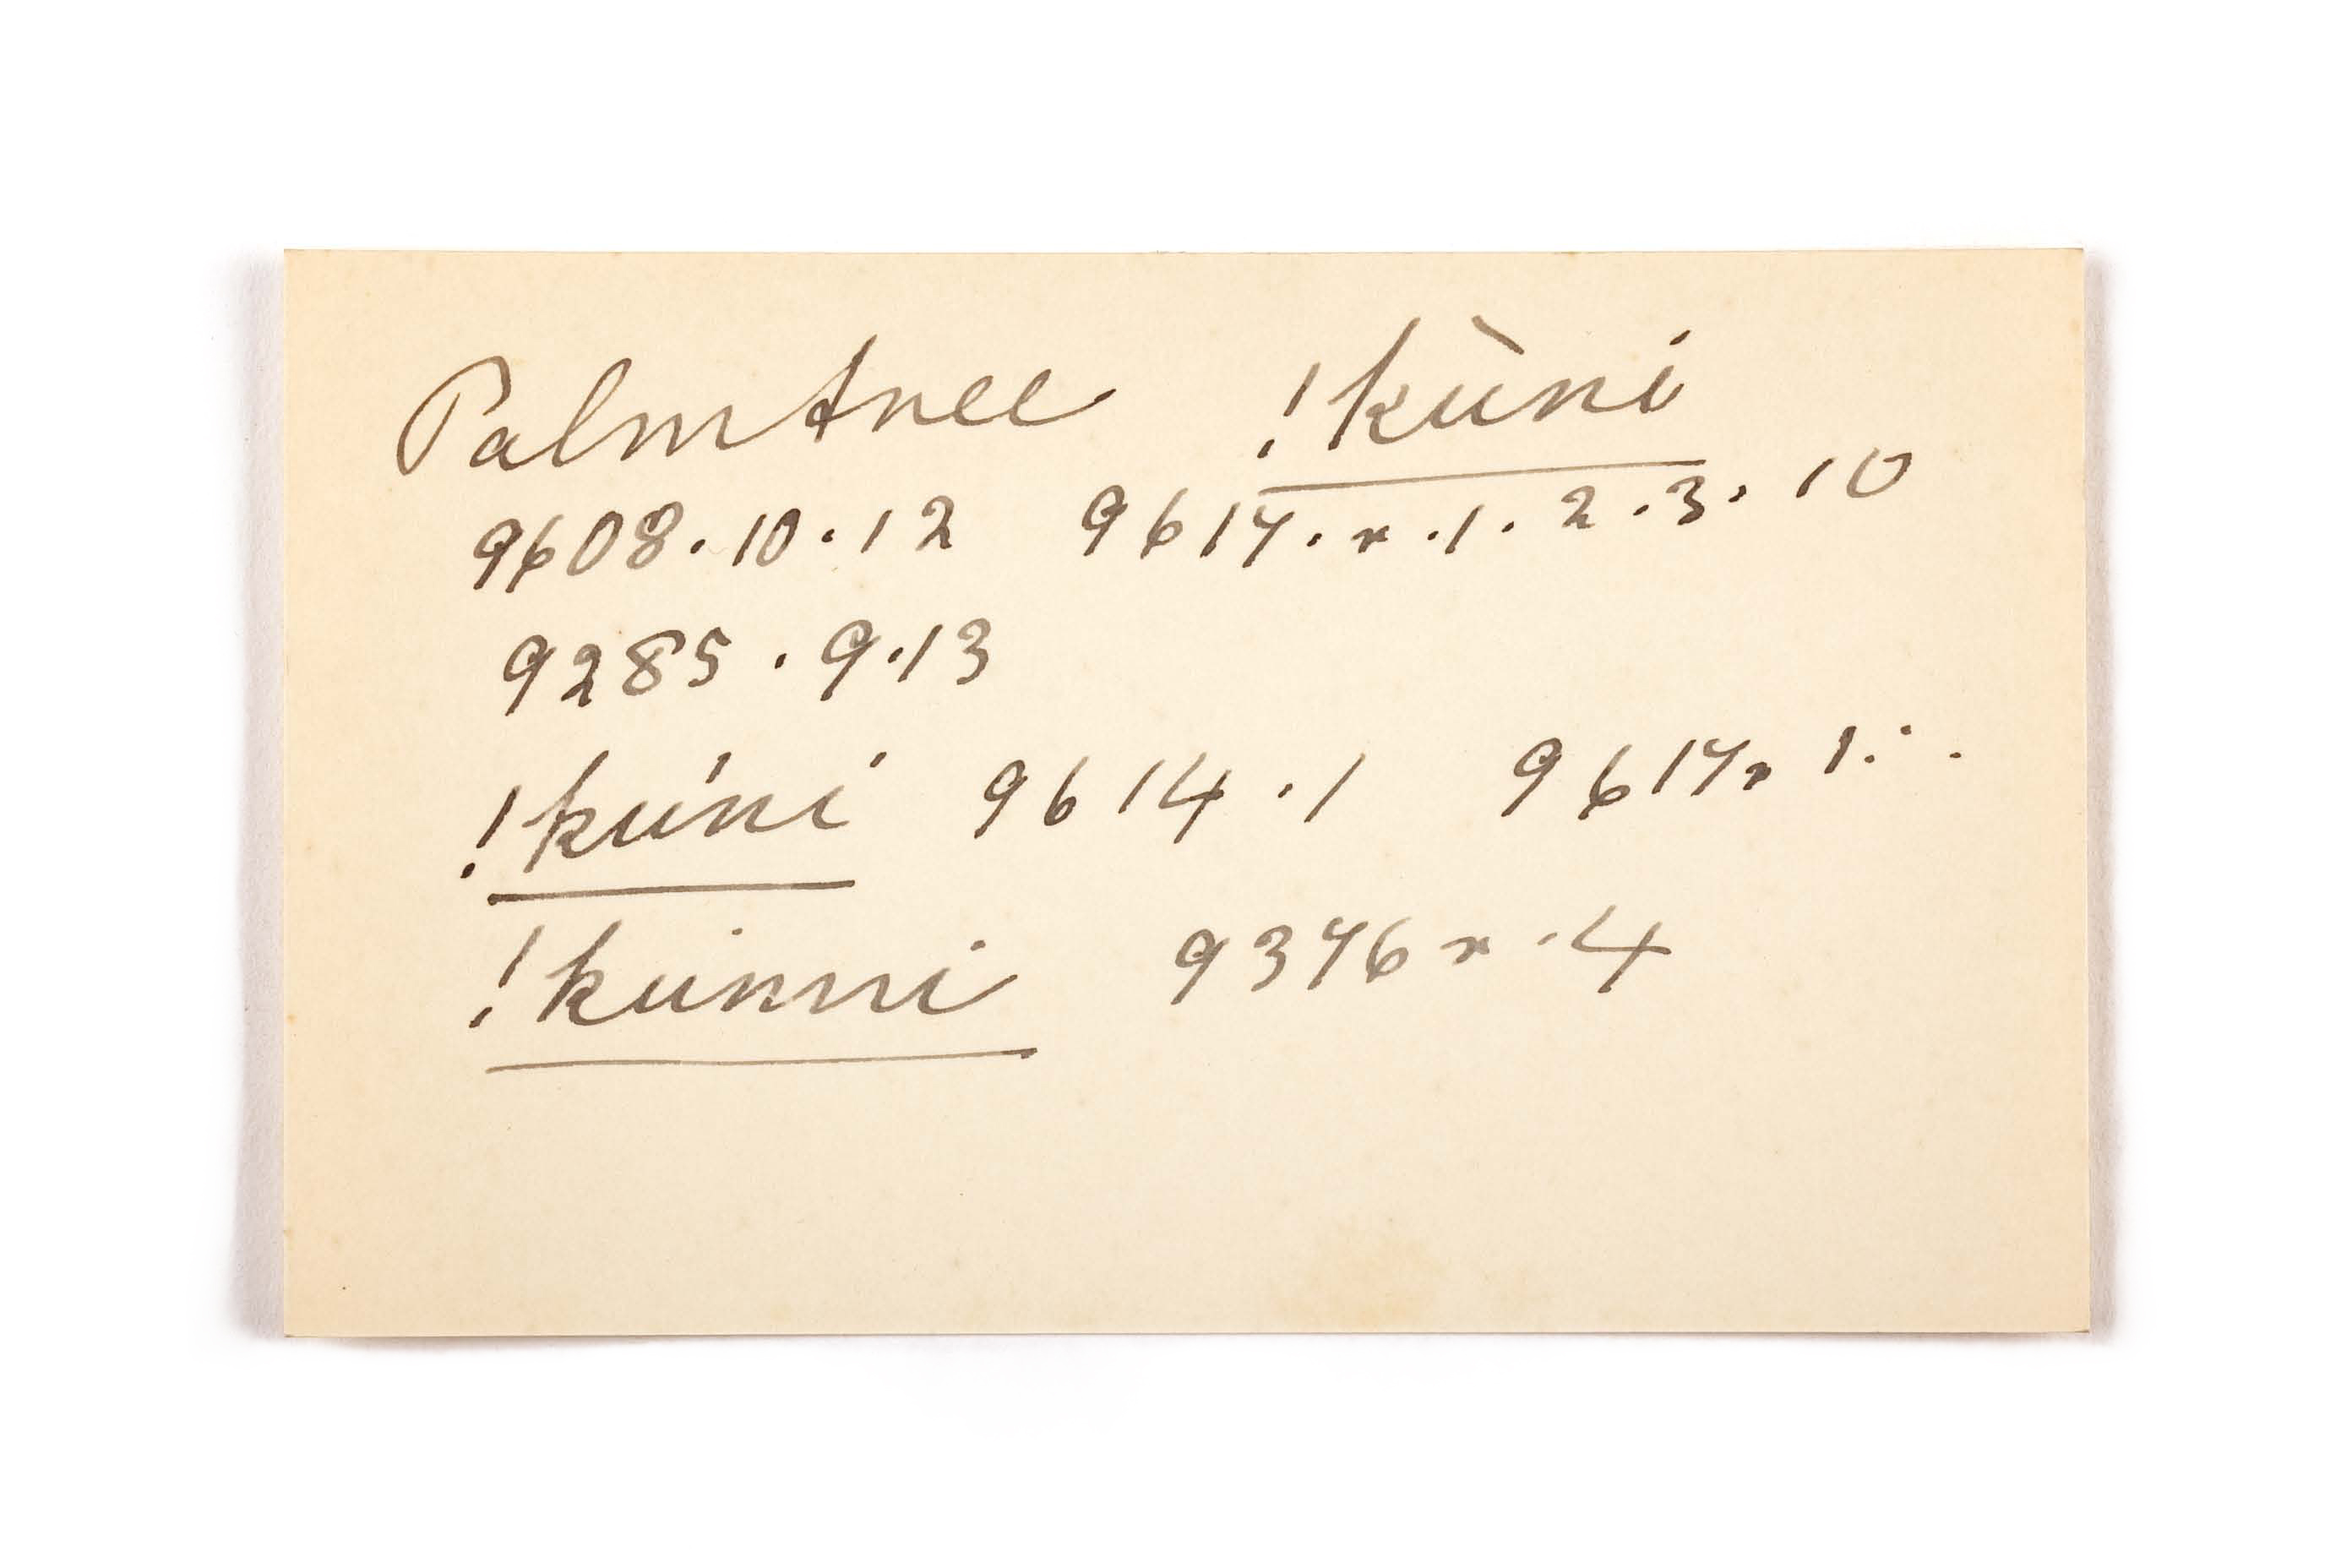 Palm tree !kùni
9608.10.12 9617.r.1.2.3.10
9285.9.13
!kúni 9614.1 9617r 1...
!kunni 9376r.4